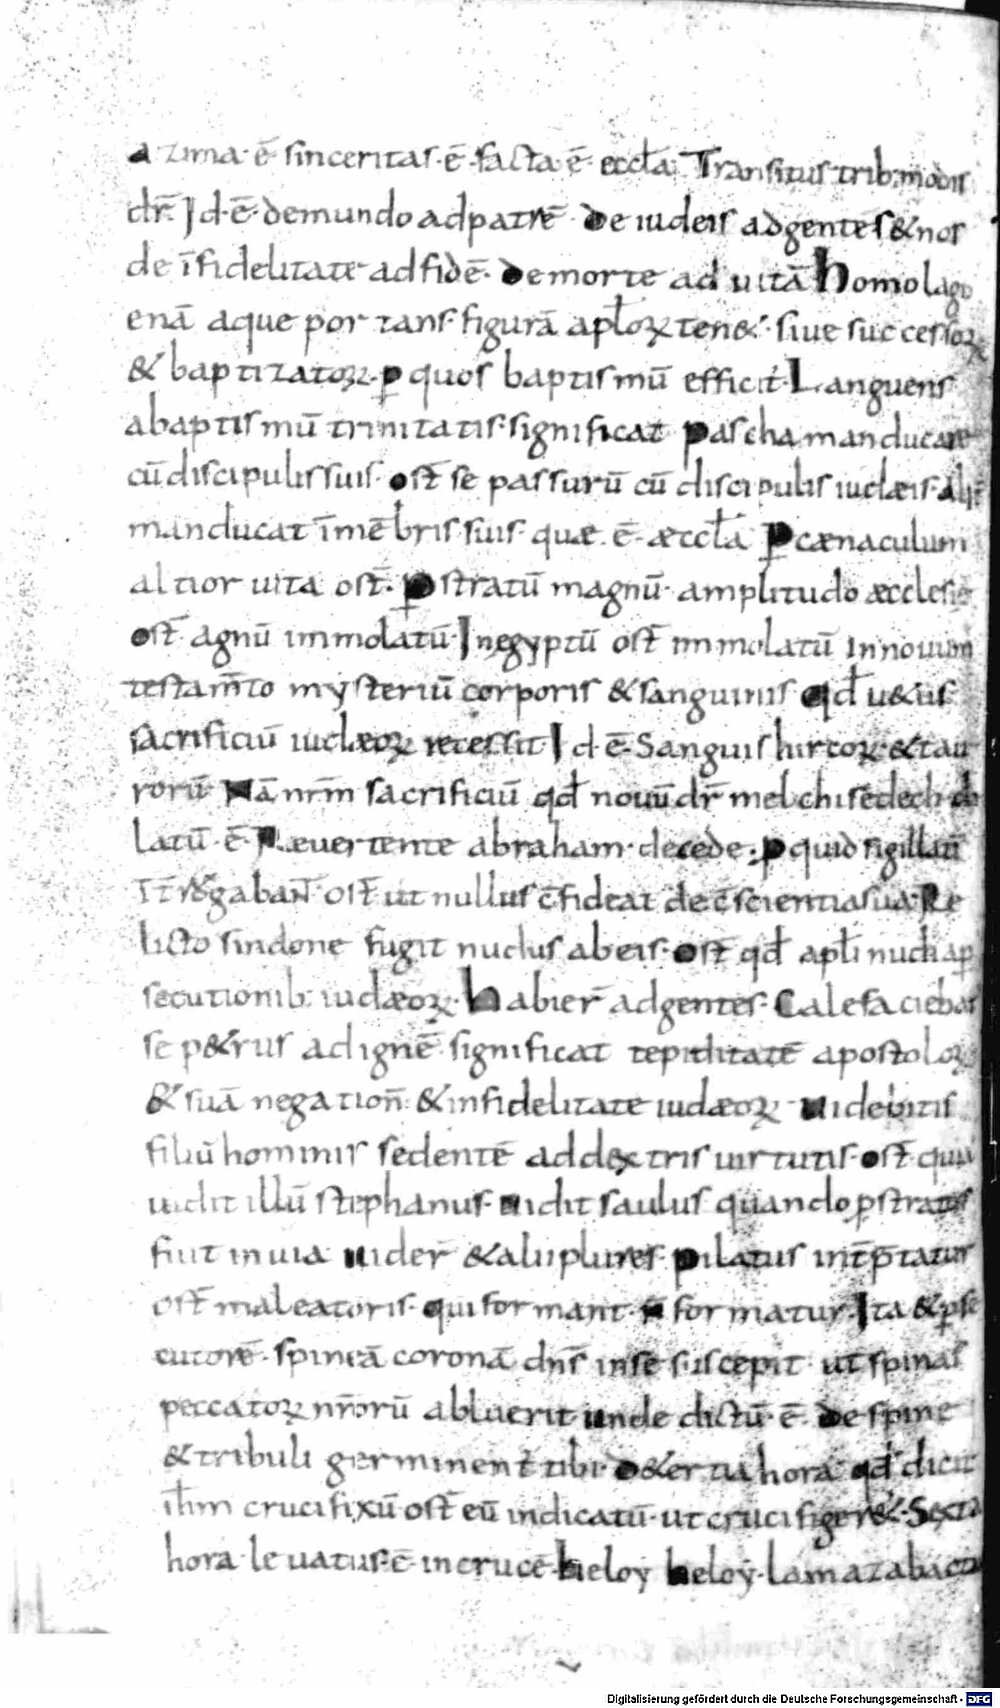 azima· ē sinceritas· ē· facta ē· eccła· Transitus trib; modis
dr̄· Id· ē· demundo adpatrē· De iudeis adgentes & nos
de īfidelitate· ad fidē· De morte ad uitā homo lago
enā aque portans· figurā apłoꝝ ten&· siue successoꝝ
& baptizatoꝝ· ꝑ quos baptismū efficit̄· Languens
abaptismū trinitatis· significat pascha manducare
cū discipulis suis· ost̄ se passurū cū discipulis iudæis·
manducat īmēbris· suis· quæ· ē· æccła ꝑ cænaculum
altior uita ost̄· ꝑ stratū magnū· amplitudo æcclesiæ
ost̄ agnū immolatū· Inegyptū ost̄ immolatū innouum
testam̄to mysteriū corporis & sanguinis qd̄ u&us
sacrificiū iudæoꝝ recessit Id· ē· Sanguis hircoꝝ· & tau
rorū Nā nr̄m sacrificiū qd̄ nouū dr̄ melchisedech ob
latū· ē· Ræuertente abraham· decede· ꝑ quid sigillati
īt̄rogaban̄t· ost̄ ut nullus c̄fideat de c̄scientia sua· Re
licto sindone fugit nudus ab eis· ost̄ qd̄ apłi nudi a ꝑ
secutionib: iudæoꝝ· habier̄ adgentes· Calefaciebat
se p&rus ad ignē· significat tepiditatē apostoloꝝ
& suā negation̄: & infidelitate iudæoꝝ uidebitis
filiū hominis sedentē addextris uirtutis· ost̄· quia
uidit illū stephanus· uidit saulus· quando ꝓstratus
fiut in uia uider̄ & alii plures· pilatus int̄p̄tatur
ost̄ maleatoris· qui formant· n̄ formatur· Ita & ꝑse
cutorē· spineā coronā dn̄s inse suscepit· ut spinas
peccatoꝝ nr̄orū abluerit unde dictū· ē· De spine
& tribuli germinent̄ tibi· D&ertia hora qd̄ dicit
ih̄m crucifixū ost̄ eū indicatū· ut crucifiger&· Sexta
hora· leuatus· ē· in crucē· heloy heloy· lamazabacta